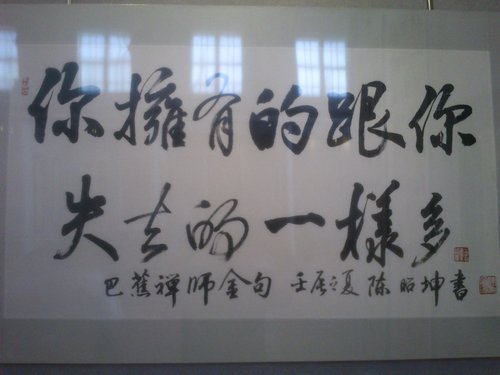 你擁有的跟你
失去的一樣多
巴蕉禅師金句 壬辰之夏陈昭坤書